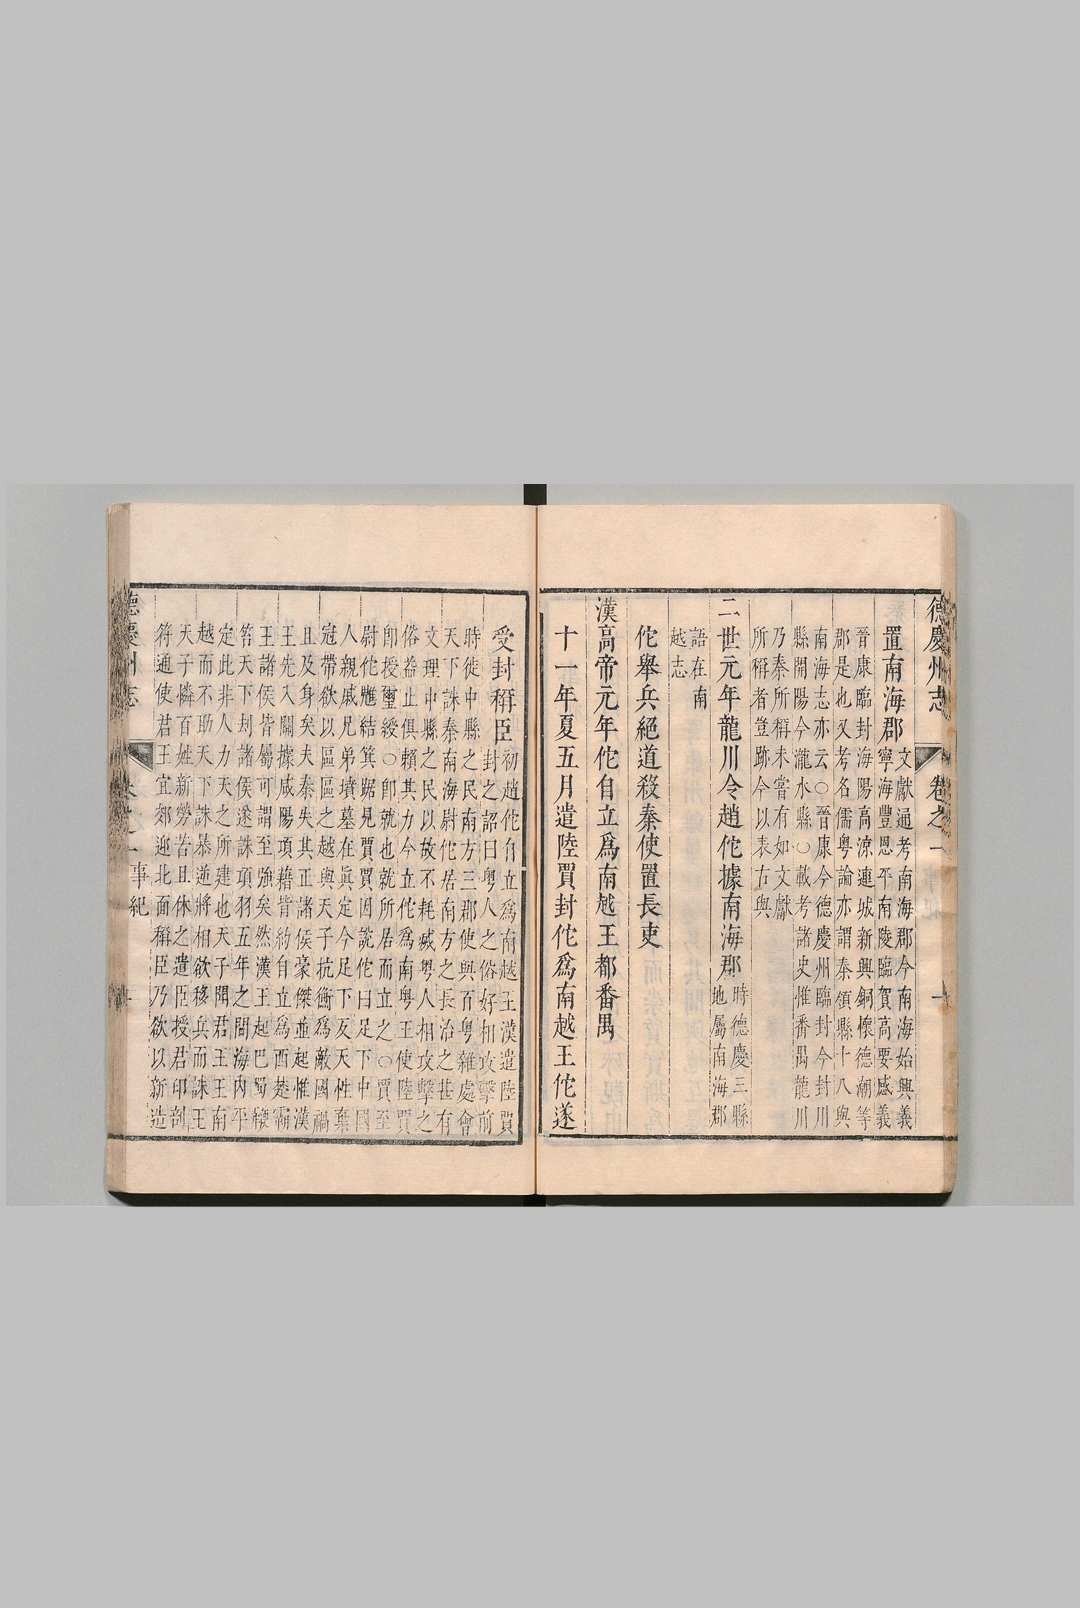 德慶州志 卷之一
置南海郡
文獻通考南海郡今南海始興義
寧海豐恩平南陵臨賀高要感義
晉康臨封海陽高涼連城新興銅櫟德潮等
郡是也又考名儒粵論亦謂秦領縣十八與
南海志亦云○晉康今德慶州臨封今封川
縣開陽今瀧水縣○載考諸史惟番禺龍川
乃秦所稱未嘗有如文獻
所稱者豈跡今以表古與
二世元年龍川令趙佗據南海郡
時德慶三縣
地屬南海郡
語在南
越志
佗舉兵絕道殺秦使置長吏
漢高帝元年佗自立爲南越王都番禺
十一年夏五月遣陸賈封佗爲南越王佗遂
受封稱臣
初趙佗自立爲南越王漢遣陸賈
封之詔曰粵人之俗好相攻擊前
時徙中縣之民南方三郡使與百粵雜處會
天下誅秦南海尉佗居南方之長治之甚有
文理中縣之民以故不耗減粵人相攻擊之
俗益止俱賴其力今立佗爲南粵王使陸賈
卽授璽綬○卽就也就所居而立之○賈至
尉佗魋結箕踞見賈賈因說佗曰足下中國
人親戚兄弟墳墓在眞定今足下反天性棄
冠帶欲以區區之越與天子抗衡爲敵國禍
且及身矣夫秦失其正諸侯豪傑並起惟漢
王先入關據咸陽項藉皆約自立爲西楚霸
王諸侯皆屬可謂至強矣然漢王起巴蜀鞭
笞天下刦諸侯遂誅項羽五年之間海內平
定此非人力天之所建也天子聞君王王南
越而不助天下誅暴逆將相欲移兵而誅王
天子憐百姓新勞苦且休之遣臣授君印剖
符通使君王宜郊迎北面稱臣乃欲以新造
德慶州志 卷之一 事紀